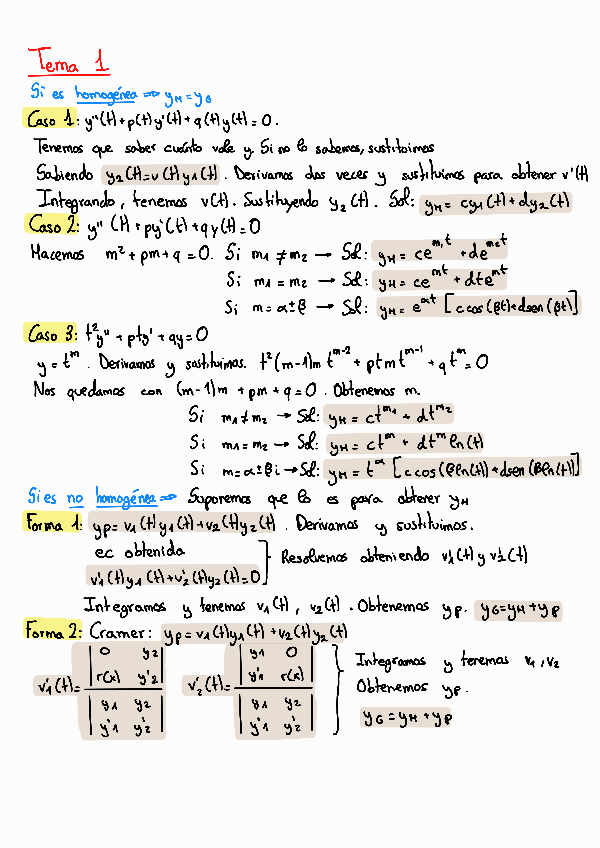 Tema 1
Si es homogénea => y_H = y_G
Caso 1: y''(t) + p(t)y'(t) + q(t)y(t) = 0.
Tenemos que saber cuánto vale y. Si no lo sabemos, sustituimos
Sabiendo y₂(t)=v(t)y₁(t). Derivamos dos veces y sustituimos para obtener v'(t)
Integrando, tenemos v(t). Sustituyendo y₂(t). Sol: y_H = cy₁(t) + dy₂(t)
Caso 2: y''(t) + py'(t) + qy(t) = 0
Hacemos m² + pm + q = 0. Si m₁ ≠ m₂ → Sol: y_H = ce^{m₁t} + de^{m₂t}
Si m₁ = m₂ → Sol: y_H = ce^{mt} + dte^{mt}
Si m = α ± β → Sol: y_H = e^{αt} [c cos(βt) + dsen(βt)]
Caso 3: t²y'' + pty' + qy = 0
y = t^m. Derivamos y sustituimos. t²(m-1)m t^{m-2} + ptm t^{m-1} + q t^m = 0
Nos quedamos con (m-1)m + pm + q = 0. Obtenemos m.
Si m₁ ≠ m₂ → Sol: y_H = ct^{m₁} + dt^{m₂}
Si m₁ = m₂ → Sol: y_H = ct^m + dt^m ln(t)
Si m = α ± βi → Sol: y_H = t^α [c cos(βln(t)) + dsen(βln(t))]
Si es no homogénea => Suponemos que lo es para obtener y_H
Forma 1: y_P = v₁(t)y₁(t) + v₂(t)y₂(t). Derivamos y sustituimos.
ec obtenida
v'₁(t)y₁(t) + v'₂(t)y₂(t) = 0 } Resolvemos obteniendo v'₁(t) y v'₂(t)
Integramos y tenemos v₁(t), v₂(t). Obtenemos y_P. y_G = y_H + y_P
Forma 2: Cramer: y_P = v₁(t)y₁(t) + v₂(t)y₂(t)
v'₁(t) = |0 y₂; r(x) y'₂| / |y₁ y₂; y'₁ y'₂| v'₂(t) = |y₁ 0; y'₁ r(x)| / |y₁ y₂; y'₁ y'₂| } Integramos y tenemos v₁, v₂
Obtenemos y_P.
y_G = y_H + y_P